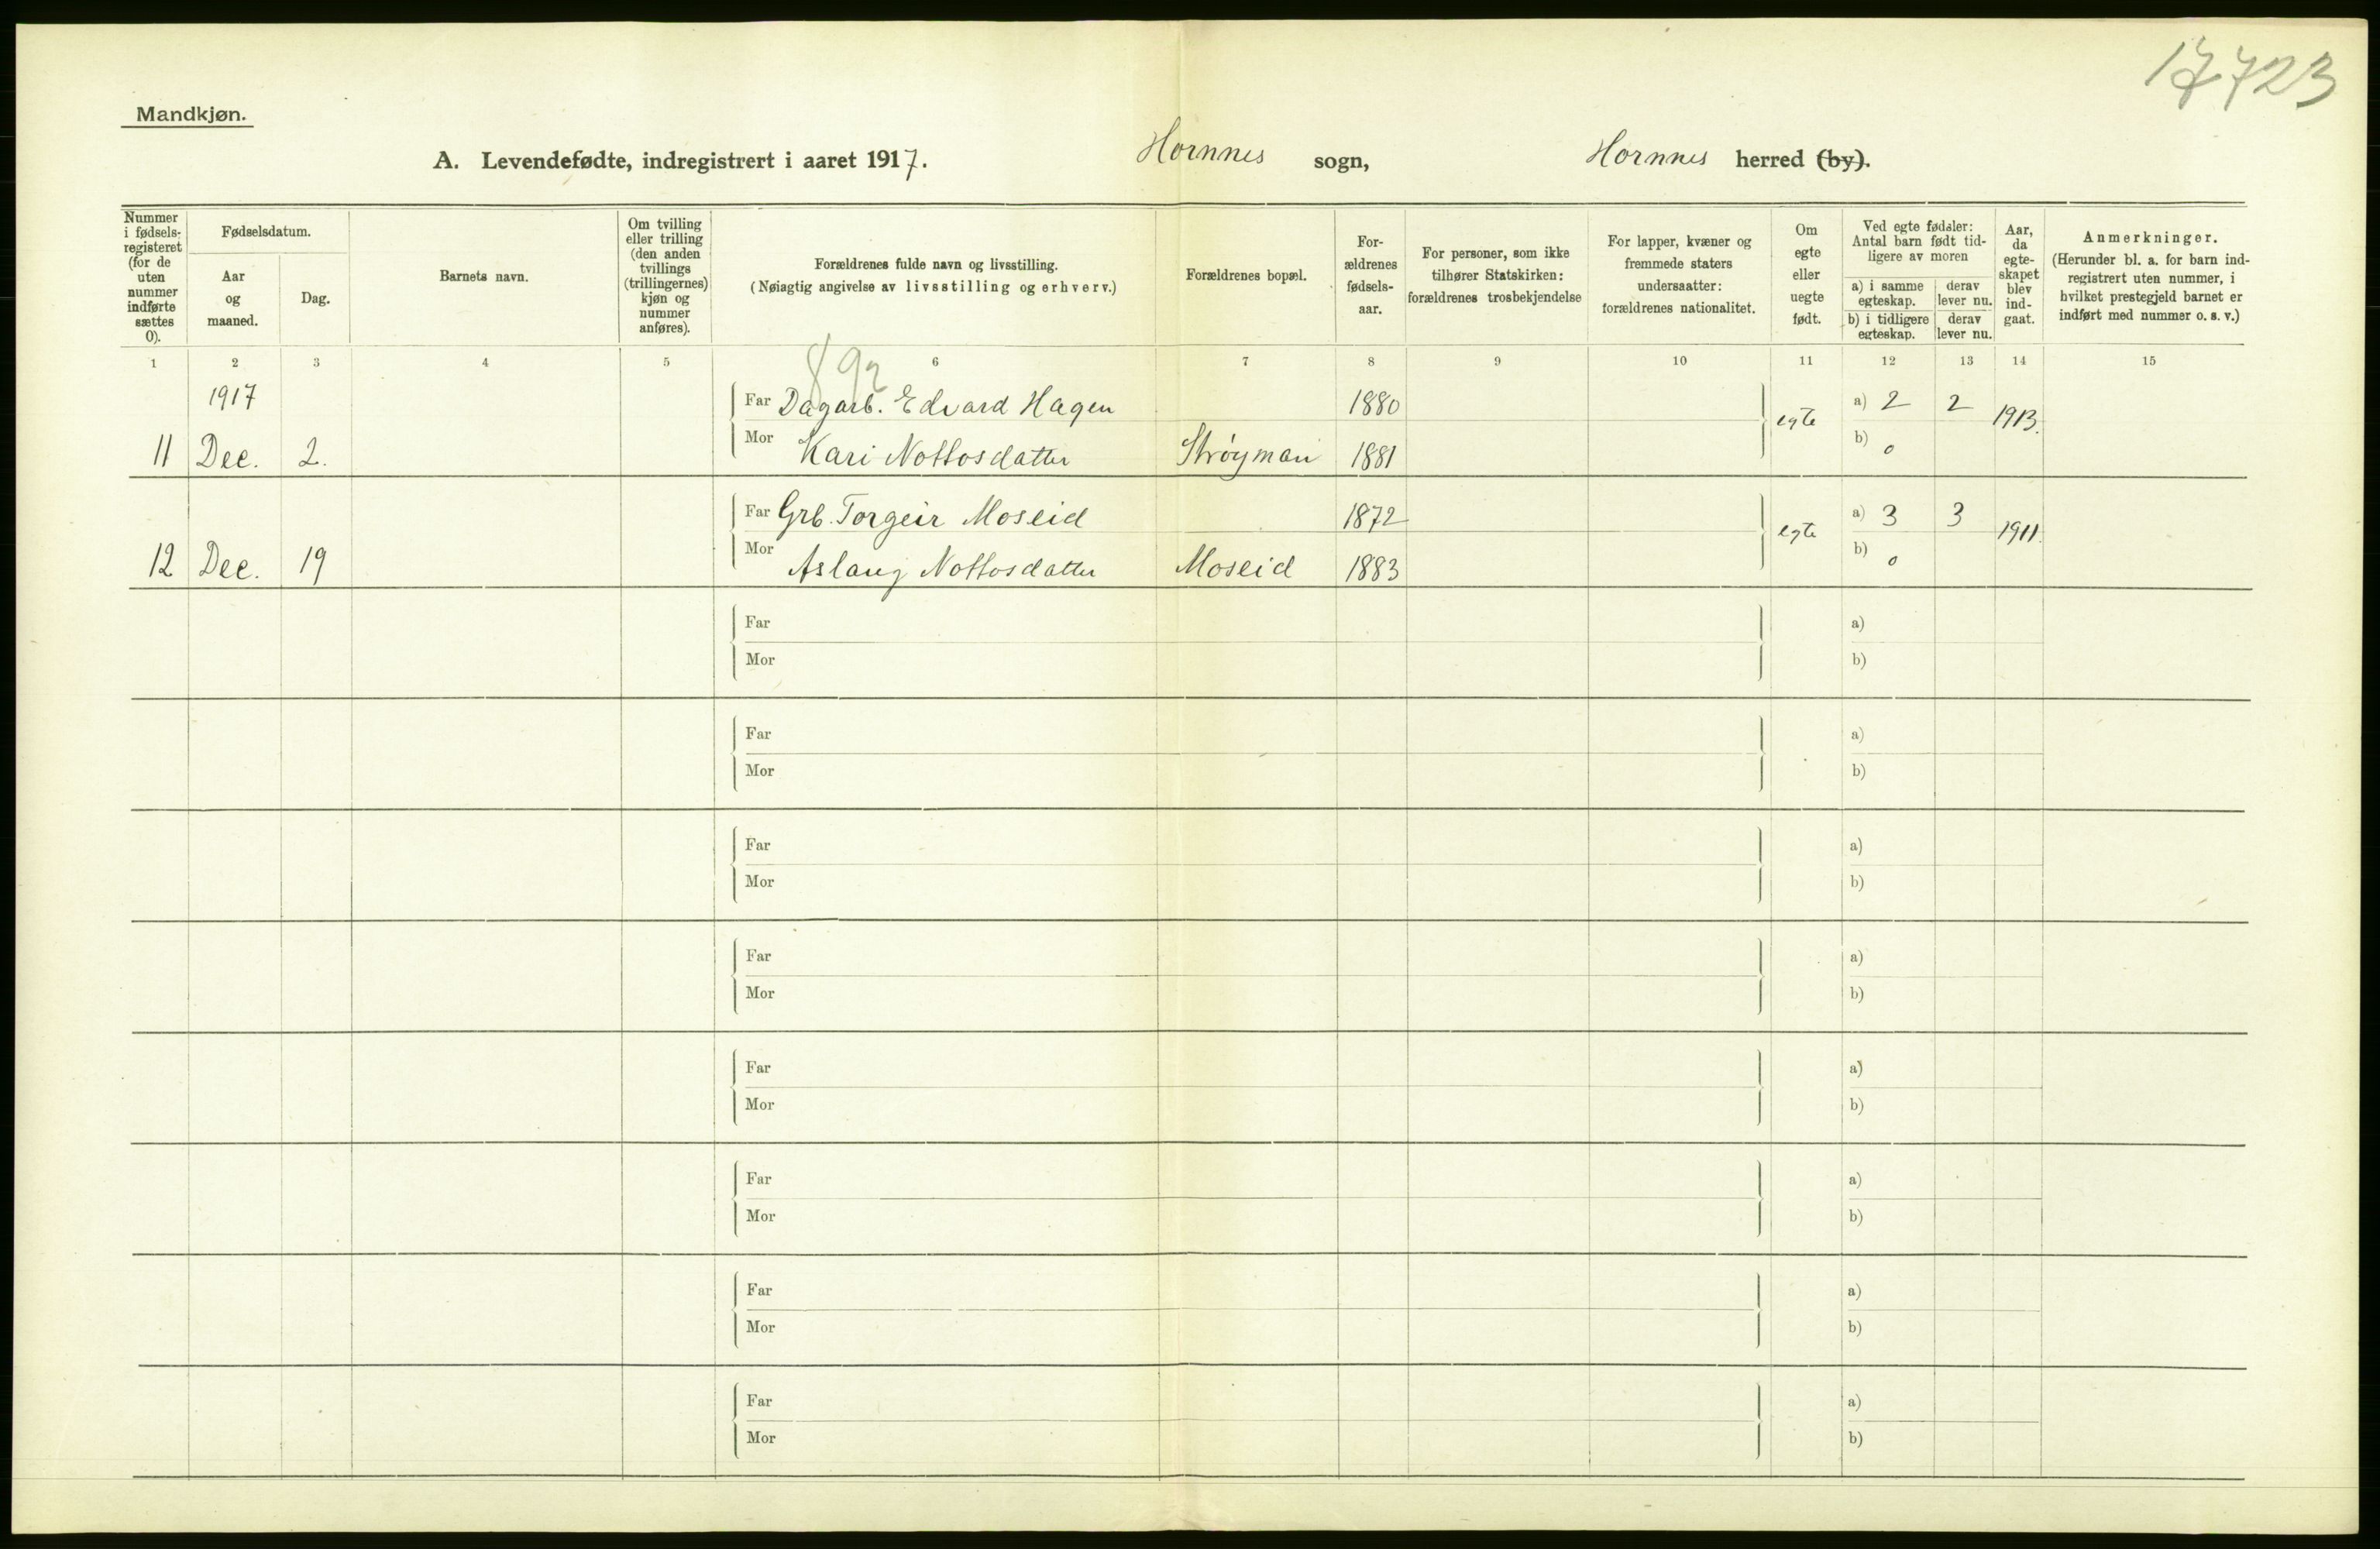 17723
Mandkjøn.
A. Levendefødte, indregistrert i aaret 1917. Hornnes sogn, Hornnes herred (by).
Nummer i fødsels-registeret (for de uten nummer indførte sættes 0).
Fødselsdatum.
Aar og maaned.
Dag.
Barnets navn.
Om tvilling eller trilling (den anden tvillings (trillingernes) kjøn og nummer anføres).
Forældrenes fulde navn og livsstilling.
(Nøiagtig angivelse av livsstilling og erhverv.)
Forældrenes bopæl.
For-ældrenes fødsels-aar.
For personer, som ikke tilhører Statskirken: forældrenes trosbekjendelse
For lapper, kvæner og fremmede staters undersaatter: forældrenes nationalitet.
Om egte eller uegte født.
Ved egte fødsler: Antal barn født tid-ligere av moren
a) i samme egteskap. derav lever nu.
b) i tidligere egteskap. derav lever nu.
Aar, da egte-skapet blev ind-gaat.
Anmerkninger.
(Herunder bl. a. for barn ind-registrert uten nummer, i hvilket prestegjeld barnet er indført med nummer o. s. v.)
1 2 3 4 5 6 7 8 9 10 11 12 13 14 15
892
1917 Far Dagarb. Edvard Hagen 1880 egte a) 2 2 1913.
11 Dec. 2. Mor Kari Nottosdatter Strøyman 1881 b) 0
Far Grb. Torgeir Moseid 1872 egte a) 3 3 1911.
12 Dec. 19 Mor Aslaug Nottosdatter Moseid 1883 b) 0
Far a)
Mor b)
Far a)
Mor b)
Far a)
Mor b)
Far a)
Mor b)
Far a)
Mor b)
Far a)
Mor b)
Far a)
Mor b)
Far a)
Mor b)